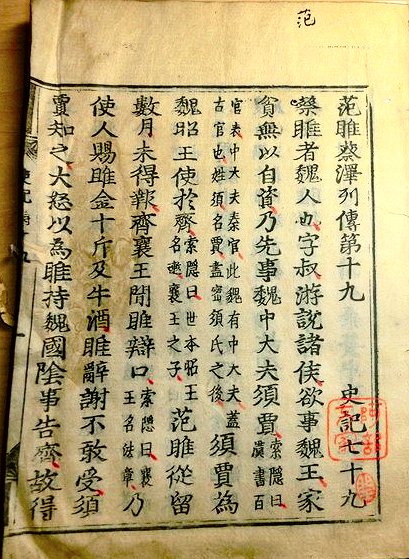 范
范雎蔡澤列傳第十九 史記七十九
范雎者魏人也字叔游說諸侯欲事魏王家
貧無以自資乃先事魏中大夫須賈索隱曰漢書百
官表中大夫秦官此魏有中大夫蓋古官也姓須名賈蓋密須氏之後須賈為
魏昭王使於齊索隱曰世本昭王名遫襄王之子范雎從留
數月未得報齊襄王聞雎辯口索隱曰襄王名法章乃
使人賜雎金十斤及牛酒雎辭謝不敢受須
賈知之大怒以為雎持魏國陰事告齊故得